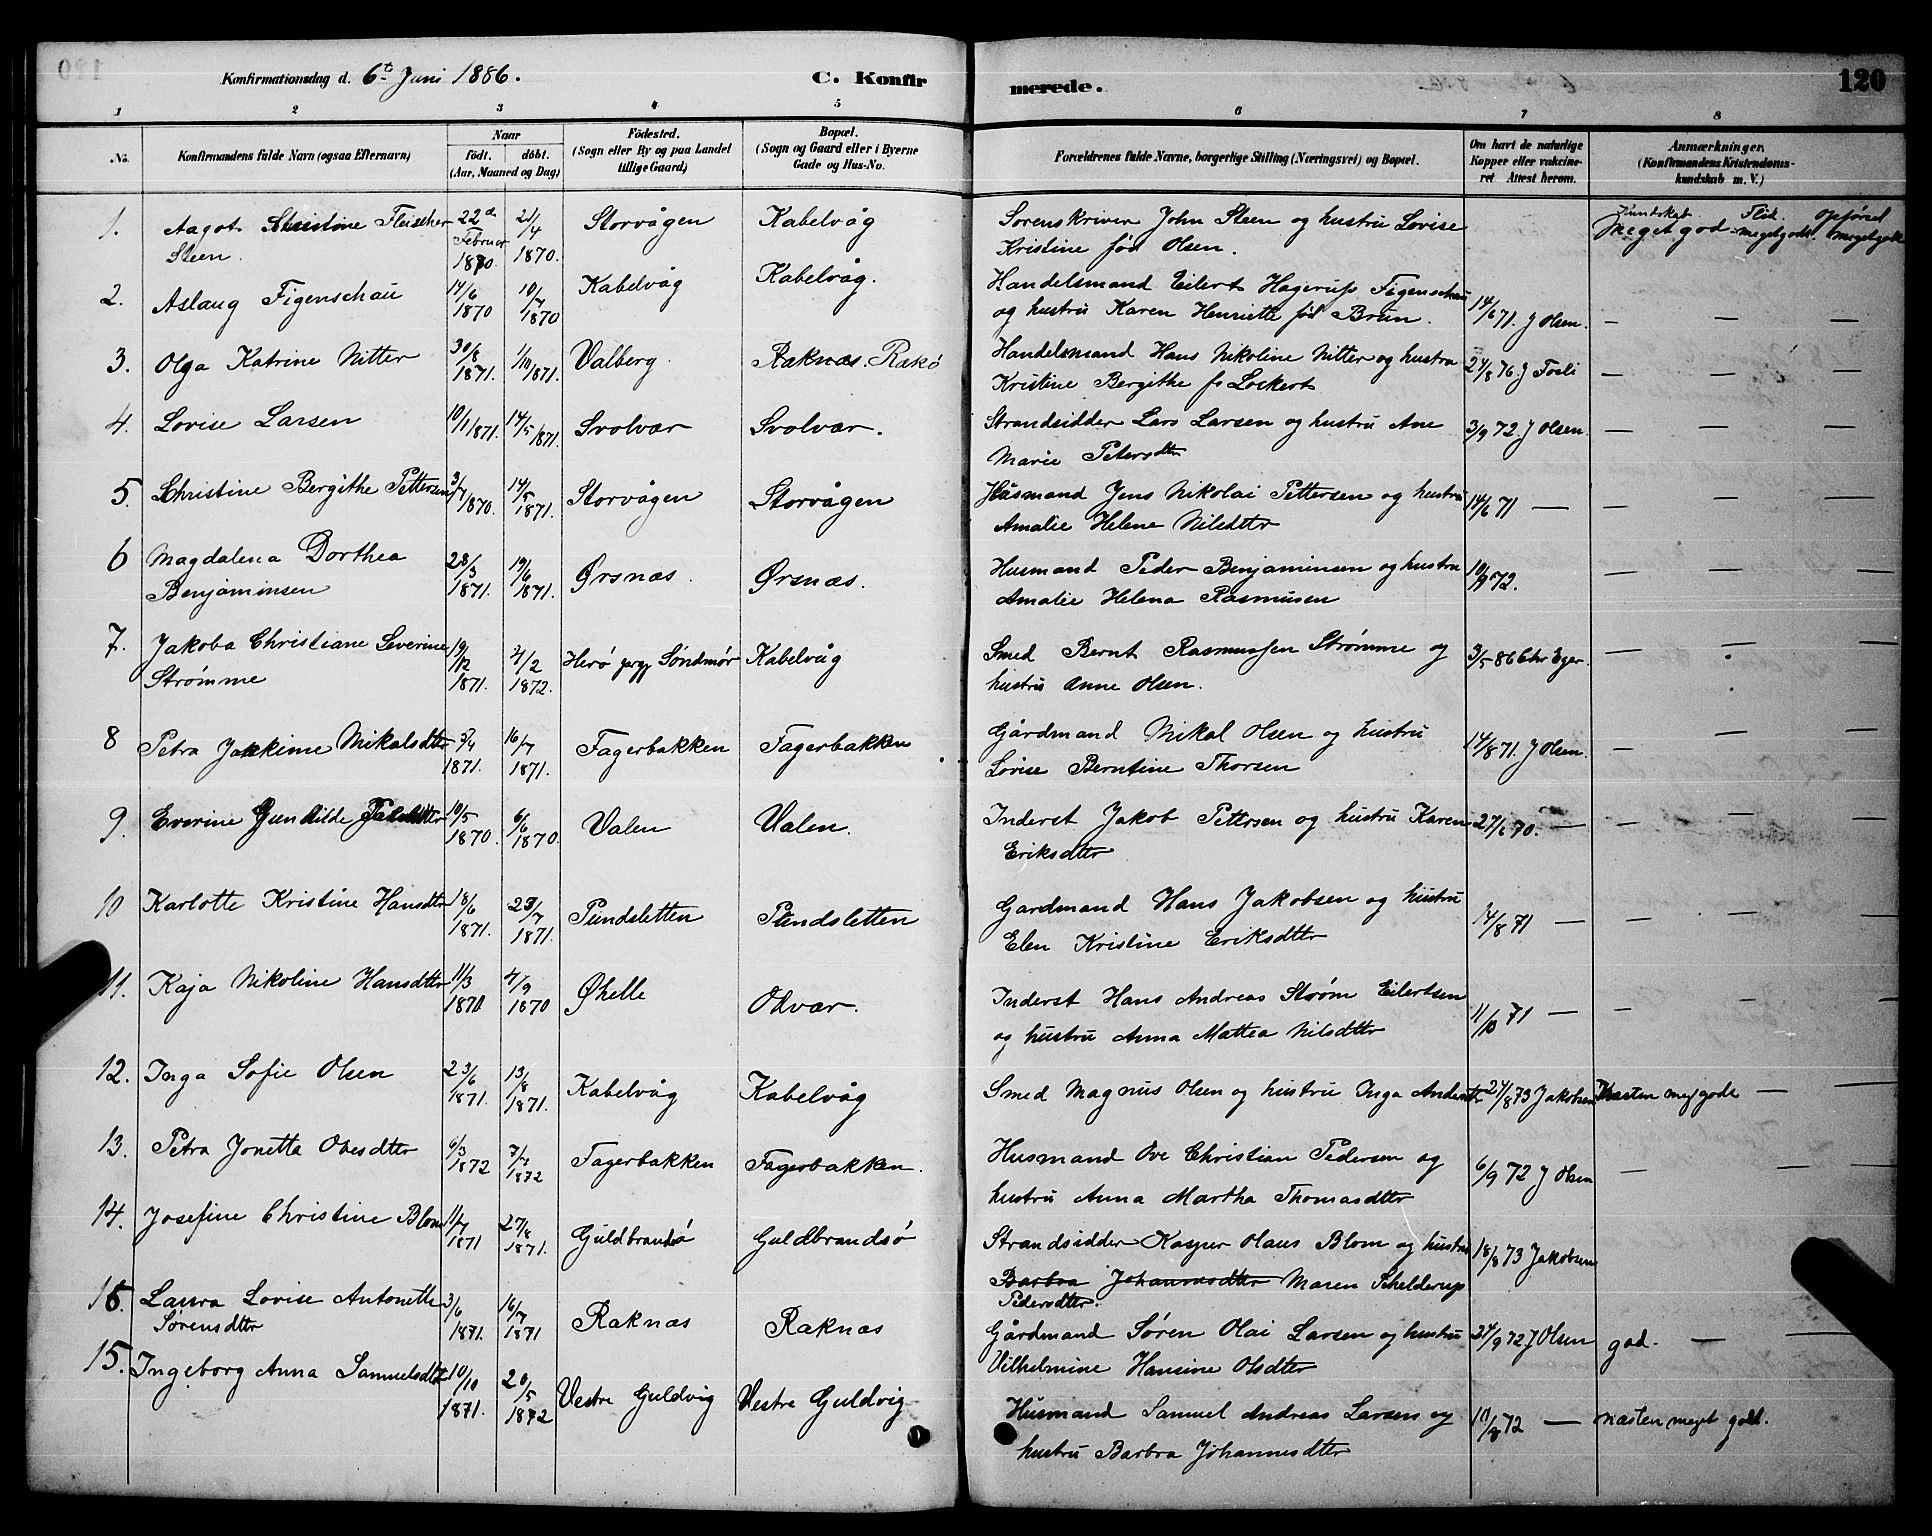 Konfirmationsdag d. 6t Juni 1886. C. Konfir merede. 120
1 2 3 4 5 6 7 8
No. Konfirmandens fulde Navn (ogsaa Efternavn) Naar födt. döbt. (Aar, Maaned og Dag) Födested. (Sogn eller By og paa Landet tillige Gaard) Bopæl. (Sogn og Gaard eller i Byerne Gade og Hus-No. Forældrenes fulde Navne, borgerlige Stilling (Næringsvei) og Bopæl. Om havt de naturlige Kopper eller vakcineret Attest herom. Anmærkninger. (Konfirmandens Kristendomskundskab m. V.)
Kundskab. Flid. Opførsel
1. Aagot Christine Fleischer 22de Februar 1870. 21/4 1870. Storvågen Kabelvåg Sorenskriver John Steen og hustru Lovise Meget god meget god. meget god
Steen. Kristine fød Olsen.
2. Aslaug Figenschau 14/6 1870 10/7 1870 Kabelvåg Kabelvåg. Handelsmand Eilert Hagerup Figenschau
og hustru Karen Henriette fød Brun. 14/6 71. J Olsen. — — —
3. Olga Katrine Nitter 30/8 1871. 1/10 1871. Valberg. Raknæs. Rækø Handelsmand Hans Nikoline Nitter og hustru
Kristine Bergithe f. Lockert 24/8 76. J Fosli — — —
4. Lovise Larsen 10/1 1871. 14/5 1871. Svolvær Svolvær. Strandsidder Lars Larsen og hustru Ane 3/9 72. J Olsen. — — —
Marie Petersdtr
5. Christine Bergithe Pettersen 3/7 1870. 14/5 1871. Storvågen Storvågen Husmand Jens Nikolai Pettersen og hustru
Amalie Helene Nilsdtr 14/6 71 — — — —
6 Magdalena Dorthea 28/3 1871. 19/6 1871. Ørsnæs. Ørsnæs. Husmand Peder Benjaminsen og hustru 10/9 72. — — —
Benjaminsen Amalie Helena Rasmusen
7. Jakoba Christiane Severine 19/12 1871. 4/2 1872. Herø prgj Søndmør Kabelvåg Smed Bernt Rasmussen Strømme og 3/5 86 Chr Eger. — — —
Strømme hustru Anne Olsen.
8 Petra Jokkime Nikalsdtr 1871. 16/7 1871. Fagerbakken Fagerbakken Gårdmand Nikal Olsen og hustru 14/8 71. J Olsen. — — —
Lovise Berntine Thorsen
9. Everine Gunhilde Jakobsdtr 10/5 1870. 6/6 1870. Valen Valen. Inderst Jakob Pettersen og hustru Karen 27/6 70. — — — —
Eriksdtr
10 Karlotte Kristine Hansdtr 18/6 1871. 23/7 1871. Pundsletten Pundsletten Gardmand Hans Jakobsen og hustru 14/8 71 — — — —
Elen Kristine Eriksdtr
11. Kaja Nikoline Hansdtr 11/3 1870 4/9 1870 Øhelle Odvær. Inderst Hans Andreas Strøm Eilertsen 11/10 71 — — — —
og hustru Anna Mattea Nilsdtr
12. Inga Sofie Olsen 23/6 1871. 13/8 1871. Kabelvåg Kabelvåg Smed Magnus Olsen og hustru Inga Andersdtr 24/8 73 Jakobsen Næsten meg godt — —
13. Petra Jonetta Ovesdtr 6/3 1872 7/7 1872 Fagerbakken Fagerbakken. Husmand Ove Christian Pedersen og 6/9 72 J Olsen — — —
hustru Anna Martha Thomasdtr
14. Josefine Christine Blom 11/7 1871 27/8 1871. Guldbrandsø Guldbrandsø Strandsidder Kasper Olaus Blom og hustru 18/8 73 Jakobsen
Barbra Johannesdtr Maren Schelderup
Pedersdtr.
16. Laura Lovise Antonette 3/6 1871. 16/7 1871 Raknæs Raknæs Gårdmand Søren Olai Larsen og hustru 24/9 72 J Olsen god. —
Sørensdtr Vilhelmine Hansine Olsdtr
15. Ingeborg Anna Samuelsdtr 10/10 1871. 20/5 1872 Vestre Guldvig Vestre Guldvig Husmand Samuel Andreas Larsen og 10/8 72 — næsten meget godt.
hustru Barbra Johannesdtr